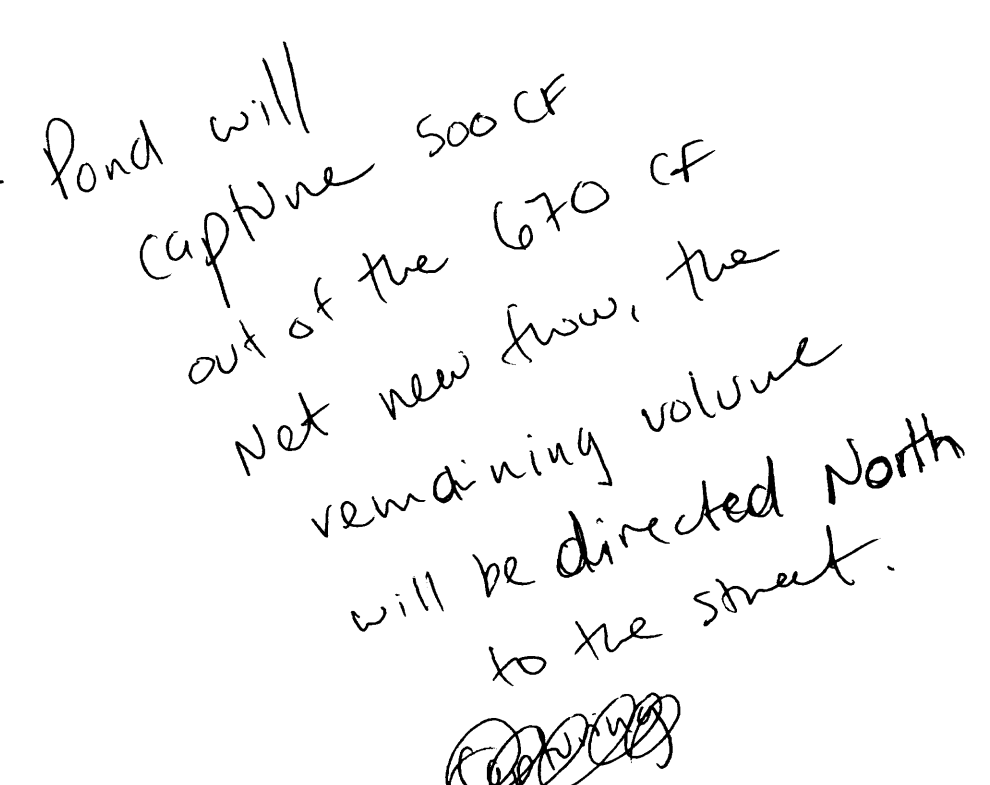 - Pond will
capture 500 CF
out of the 670 CF
Net new flow, the
remaining volume
will be directed North
to the street.